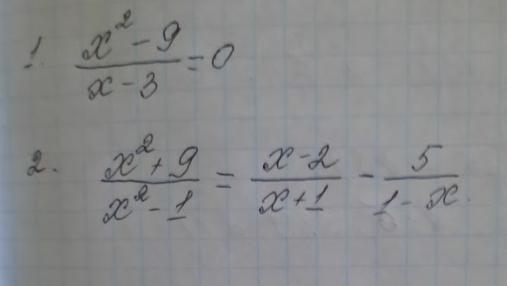 1. (x² - 9)/(x - 3) = 0
2. (x² + 9)/(x² - 1) = (x - 2)/(x + 1) - 5/(1 - x).